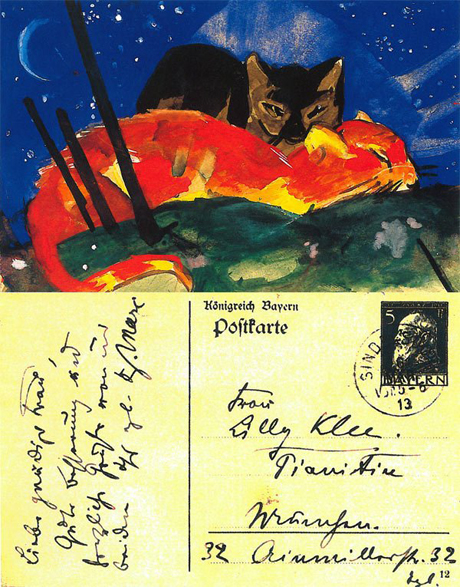 Liebe gnädige Frau,
Gute Besserung und
herzliche Grüße von uns
beiden Ihr Fz. Marc
Königreich Bayern
Postkarte
5
BAYERN
SIND
13
Frau
Lilly Klee.
Pianistin
München.
32 Ainmillerstr. 32
12